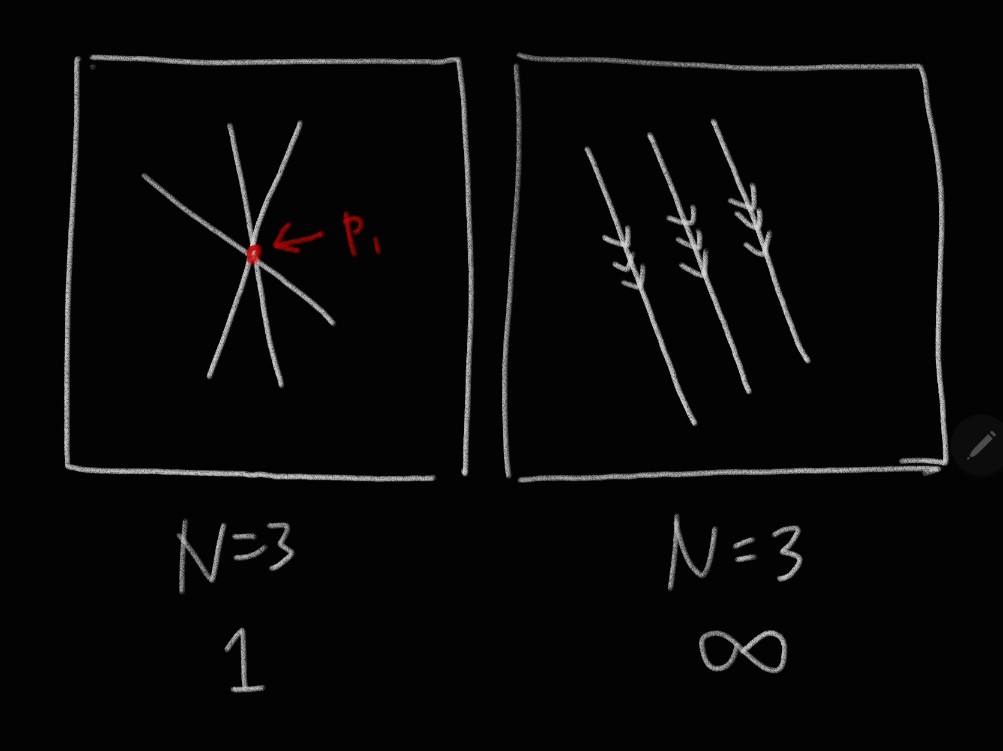 P₁
N=3
1
N=3
∞